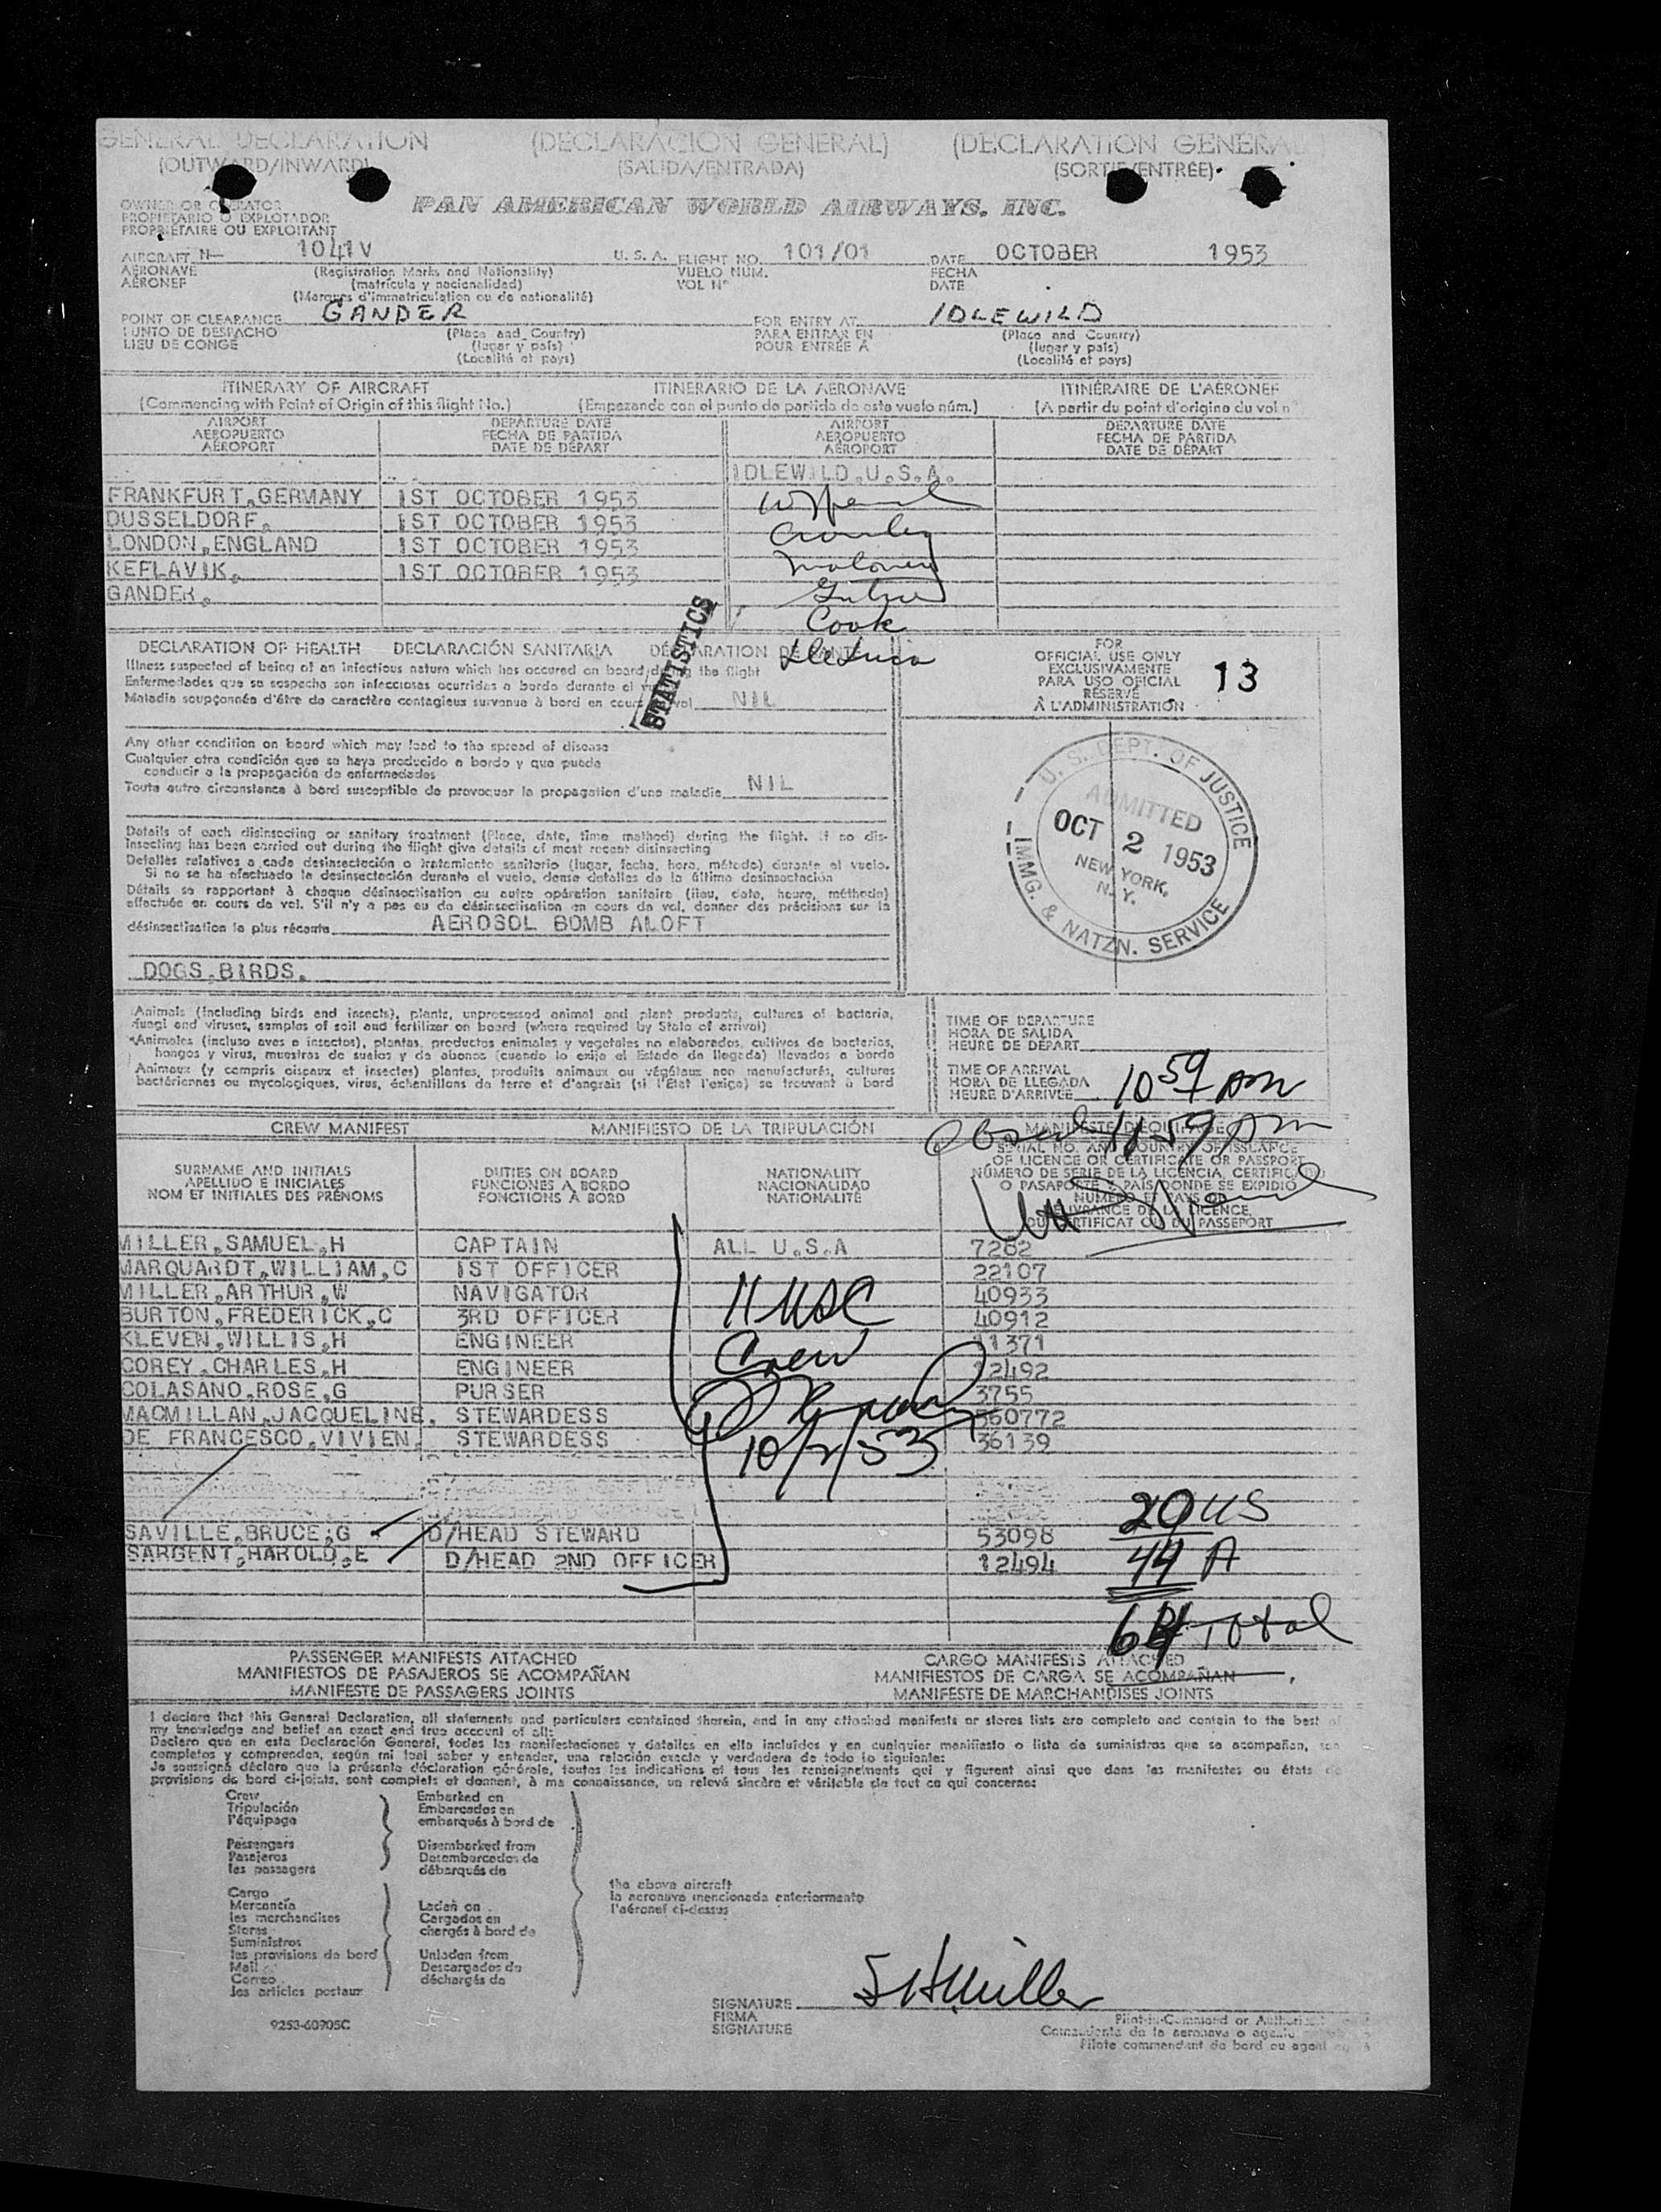 GENERAL DECLARATION (DECLARACION GENERAL) (DECLARATION GENERA
(OUTWARD/INWARD) (SALIDA/ENTRADA) (SORTIE/ENTRÉE)
OWNER OR OPERATOR
PROPIETARIO O EXPLOTADOR
PROPRIÉTAIRE OU EXPLOITANT
PAN AMERICAN WORLD AIRWAYS, INC.
AIRCRAFT N- 1041V U. S. A. FLIGHT NO. 101/01 DATE OCTOBER 1953
AERONAVE (Registration Marks and Nationality) VUELO NUM. FECHA
AÉRONEF (matrícula y nacionalidad) VOL Nº DATE
(Marques d'immatriculation ou de nationalité)
POINT OF CLEARANCE GANDER FOR ENTRY AT IDLEWILD
PUNTO DE DESPACHO (Place and Country) PARA ENTRAR EN (Place and Country)
LIEU DE CONGÉ (lugar y país) POUR ENTRÉE A (lugar y país)
(Localité et pays) (Localité et pays)
ITINERARY OF AIRCRAFT ITINERARIO DE LA AERONAVE ITINÉRAIRE DE L'AÉRONEF
(Commencing with Point of Origin of this flight No.) (Empezando con el punto de partida de este vuelo núm.) (A partir du point d'origine du vol n°
AIRPORT DEPARTURE DATE AIRPORT DEPARTURE DATE
AEROPUERTO FECHA DE PARTIDA AEROPUERTO FECHA DE PARTIDA
AÉROPORT DATE DE DÉPART AÉROPORT DATE DE DÉPART
IDLEWILD.U.S.A.
FRANKFURT,GERMANY 1ST OCTOBER 1953
DUSSELDORF, 1ST OCTOBER 1953
LONDON,ENGLAND 1ST OCTOBER 1953
KEFLAVIK, 1ST OCTOBER 1953
GANDER,
Cook
DeLuca
STATISTICS
DECLARATION OF HEALTH DECLARACIÓN SANITARIA DÉCLARATION DE SANTÉ
Illness suspected of being of an infectious nature which has occured on board during the flight
Enfermedades que se sospecha son infecciosas ocurridas a bordo durante el vuelo
Maladie soupçonnée d'être de caractère contagieux survenue à bord en cours de vol NIL
FOR
OFFICIAL USE ONLY
EXCLUSIVAMENTE
PARA USO OFICIAL
RÉSERVÉ
À L'ADMINISTRATION
13
Any other condition on board which may lead to the spread of disease
Cualquier otra condición que se haya producido a bordo y que pueda
conducir a la propagación de enfermedades
Toute autre circonstance à bord susceptible de provoquer la propagation d'une maladie NIL
U. S. DEPT. OF JUSTICE
ADMITTED
OCT 2 1953
NEW YORK,
N. Y.
IMMG. & NATZN. SERVICE
Details of each disinsecting or sanitary treatment (Place, date, time method) during the flight. If no dis-
insecting has been carried out during the flight give details of most recent disinsecting
Detalles relativos a cada desinsectación o tratamiento sanitario (lugar, fecha, hora, método) durante el vuelo.
Si no se ha efectuado la desinsectación durante el vuelo, dense detalles de la última desinsectación
Détails se rapportant à chaque désinsectisation ou autre opération sanitaire (lieu, date, heure, méthode)
effectuée en cours de vol. S'il n'y a pas eu de désinsectisation en cours de vol, donner des précisions sur la
désinsectisation la plus récente AEROSOL BOMB ALOFT
DOGS,BIRDS.
Animals (including birds and insects), plants, unprocessed animal and plant products, cultures of bacteria,
fungi and viruses, samples of soil and fertilizer on board (where required by State of arrival)
Animales (incluso aves e insectos), plantas, productos animales y vegetales no elaborados, cultivos de bacterias,
hongos y virus, muestras de suelos y de abonos (cuando lo exija el Estado de llegada) llevados a bordo
Animaux (y compris oiseaux et insectes) plantes, produits animaux ou végétaux non manufacturés, cultures
bactériennes ou mycologiques, virus, échantillons de terre et d'engrais (si l'État l'exige) se trouvant à bord
TIME OF DEPARTURE
HORA DE SALIDA
HEURE DE DÉPART
TIME OF ARRIVAL
HORA DE LLEGADA
HEURE D'ARRIVÉE 10 59 PM
11 59 PM
CREW MANIFEST MANIFIESTO DE LA TRIPULACIÓN MANIFESTE D'EQUIPAGE
SURNAME AND INITIALS DUTIES ON BOARD NATIONALITY
APELLIDO E INICIALES FUNCIONES A BORDO NACIONALIDAD
NOM ET INITIALES DES PRÉNOMS FONCTIONS À BORD NATIONALITÉ
SERIAL NO. AND COUNTRY OF ISSUANCE
OF LICENCE OR CERTIFICATE OR PASSPORT
NÚMERO DE SERIE DE LA LICENCIA, CERTIFICADO
O PASAPORTE Y PAIS DONDE SE EXPIDIÓ
NUMÉRO ET PAYS DE
DÉLIVRANCE DE LA LICENCE,
DU CERTIFICAT OU DU PASSEPORT
MILLER,SAMUEL,H CAPTAIN ALL U.S.A 7262
MARQUARDT,WILLIAM,C 1ST OFFICER 22107
MILLER,ARTHUR,W NAVIGATOR 40933
BURTON,FREDERICK,C 3RD OFFICER 40912
KLEVEN,WILLIS,H ENGINEER 11371
COREY,CHARLES,H ENGINEER 12492
COLASANO,ROSE,G PURSER 3755
MACMILLAN,JACQUELINE, STEWARDESS 560772
DE FRANCESCO,VIVIEN, STEWARDESS 36139
11 USC
Crew
10/2/53
SAVILLE,BRUCE,G D/HEAD STEWARD 53098
SARGENT,HAROLD,E D/HEAD 2ND OFFICER 12494
20 US
44 A
64 Total
PASSENGER MANIFESTS ATTACHED CARGO MANIFESTS ATTACHED
MANIFIESTOS DE PASAJEROS SE ACOMPAÑAN MANIFIESTOS DE CARGA SE ACOMPAÑAN
MANIFESTE DE PASSAGERS JOINTS MANIFESTE DE MARCHANDISES JOINTS
I declare that this General Declaration, all statements and particulars contained therein, and in any attached manifests or stores lists are complete and contain to the best of
my knowledge and belief an exact and true account of all:
Declaro que en esta Declaración General, todas las manifestaciones y detalles en ella incluidos y en cualquier manifiesto o lista de suministros que se acompañan, son
completos y comprenden, según mi leal saber y entender, una relación exacta y verdadera de todo lo siguiente:
Je soussigné déclare que la présente déclaration générale, toutes les indications et tous les renseignements qui y figurent ainsi que dans les manifestes ou états de
provisions de bord ci-joints, sont complets et donnent, à ma connaissance, un relevé sincère et véritable de tout ce qui concerne:
Crew Embarked on
Tripulación Embarcados en
l'équipage embarqués à bord de
Passengers Disembarked from
Pasajeros Desembarcados de
les passagers débarqués de
the above aircraft
la aeronave mencionada anteriormente
l'aéronef ci-dessus
Cargo
Mercancía Laden on
les marchandises Cargados en
Stores chargés à bord de
Suministros
les provisions de bord Unladen from
Mail Descargados de
Correo déchargés de
les articles postaux
SIGNATURE SHMiller
FIRMA
SIGNATURE
Pilot-in-Command or Authorized
Comandante de la aeronave o agente
Pilote commandant de bord ou agent
9253-60905C